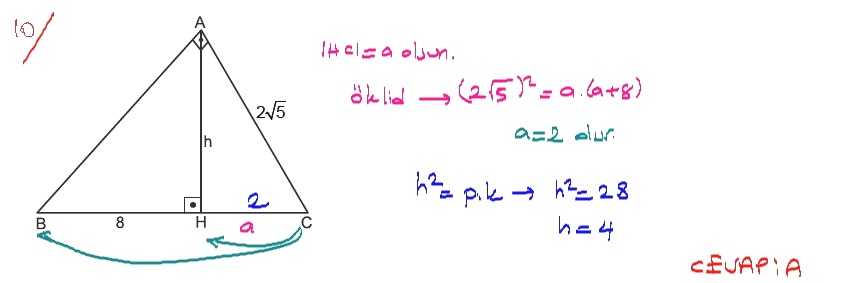 10
A
2√5
h
2
B 8 H a C
|HC|=a olsun.
öklid → (2√5)²=a.(a+8)
a=2 olur.
h²=p.k → h²=2.8
h=4
CEVAP:A